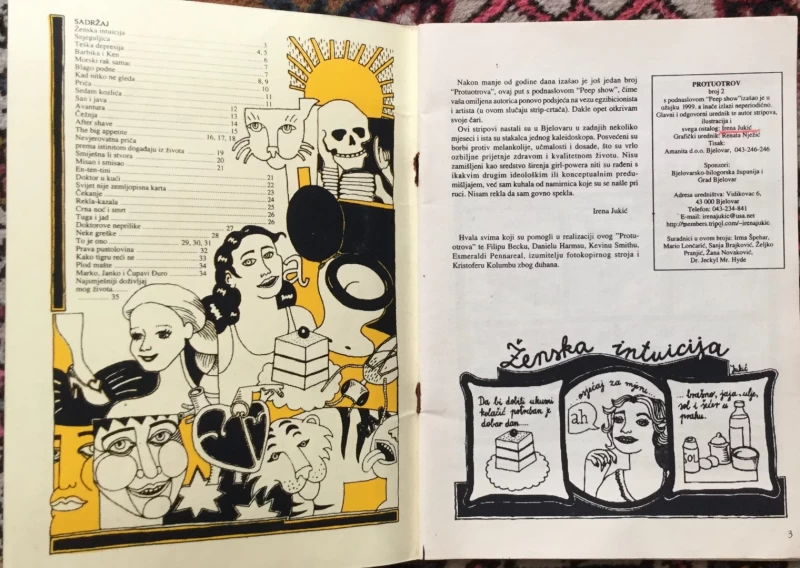 SADRŽAJ
Ženska intuicija
Snjeguljica
Teška depresija 3
Barbika i Ken 4, 5
Morski rak samac
Blago podne 7
Kad nitko ne gleda
Priča 8, 9
Sedam kozlića 10
San i java 11
Avantura 12
Čežnja 13
After shave 14
The big apperite 15
Nevjerovatna priča 16, 17, 18
prema istinitom događaju iz života 19
Smiješna li stvora 20
Misan i smisao 21
En-ten-tini 21
Doktor u kući
Svijet nije zemljopisna karta 22
Čekanje 23
Rekla-kazala 24
Crna noć i smrt 25
Tuga i jad
Doktorove neprilike 27
Neke greške 28
To je ono 29, 30, 31
Prava pustolovina 32
Kako tigru reći ne 33
Plod mašte 34
Marko, Janko i Čupavi Đuro 34
Najsmješniji doživljaj
mog života 35
Nakon manje od godine dana izašao je još jedan broj
"Protuotrova", ovaj put s podnaslovom "Peep show", čime
vaša omiljena autorica ponovo podsjeća na vezu egzibicionista
i artista (u ovom slučaju strip-crtača). Dakle opet otkrivam
svoje čari.
Ovi stripovi nastali su u Bjelovaru u zadnjih nekoliko
mjeseci i ista su stakalca jednog kaleidoskopa. Posvećeni su
borbi protiv melankolije, učmalosti i dosade, što su vrlo
ozbiljne prijetnje zdravom i kvalitetnom životu. Nisu
zamišljeni kao sredstvo širenja girl-powera niti su rađeni s
ikakvim drugim ideološkim ili konceptualnim predu-
mišljajem, već sam kuhala od namirnica koje su se našle pri
ruci. Nisam rekla da sam govno spekla.
Irena Jukić
Hvala svima koji su pomogli u realizaciji ovog "Protu-
otrova" te Filipu Becku, Danielu Harmsu, Kevinu Smithu,
Esmeraldi Pennareal, izumitelju fotokopirnog stroja i
Kristoferu Kolumbu zbog duhana.
PROTUOTROV
broj 2
s podnaslovom "Peep show"izašao je u
ožujku 1999. a inače izlazi neperiodično.
Glavni i odgovorni urednik te autor stripova,
ilustracija i
svega ostalog: Irena Jukić
Grafički urednik: Renata Nježić
Tisak:
Amanita d.o.o. Bjelovar, 043-246-246
Sponzori:
Bjelovarsko-bilogorska županija i
Grad Bjelovar
Adresa uredništva: Vidikovac 6,
43 000 Bjelovar
Telefon: 043-234-841
E-mail: irenajukic@usa.net
http://members.tripol.com/~irenajukic
Suradnici u ovom broju: Irma Špehar,
Mario Lončarić, Sanja Brajković, Željko
Pranjić, Žana Novaković,
Dr. Jeckyl Mr. Hyde
Ženska intuicija
Jukić
Da bi dobili ukusni
kolačić potreban je
dobar dan....
osjećaj za mjeru...
ah
... brašno, jaja, ulje,
sol i šećer u
prahu.
SOL
3